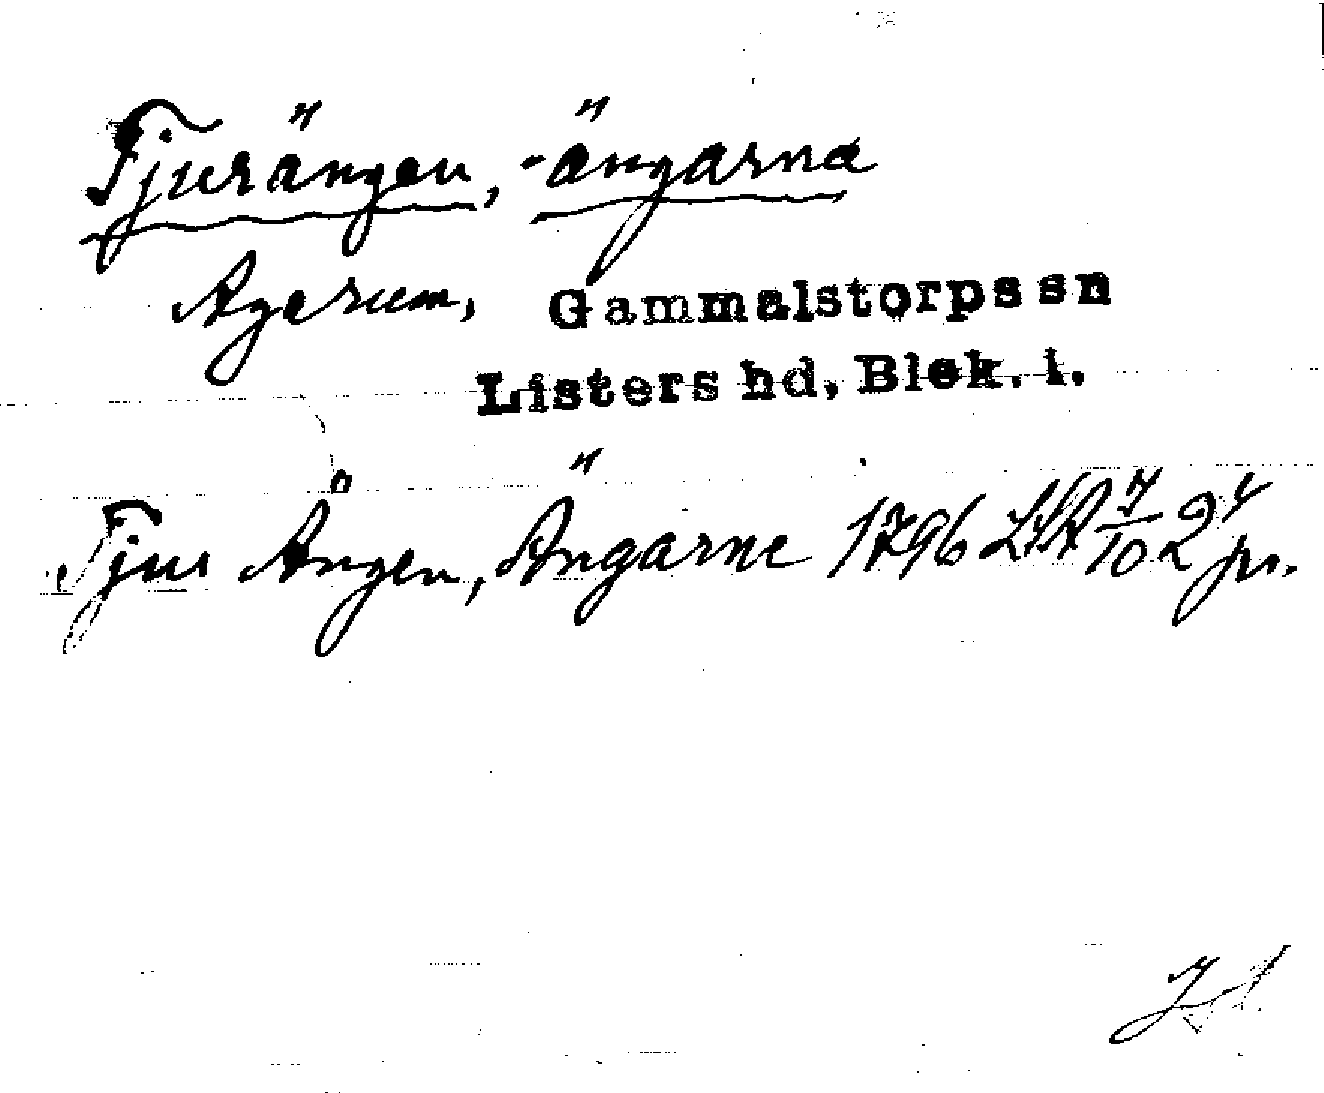 Tjurängen, -ängarna
Agerum, Gammalstorps sn
Listers hd, Blek. l.
Tjur Ången, Ängarne 1796 LSA 7/10 24 pr.